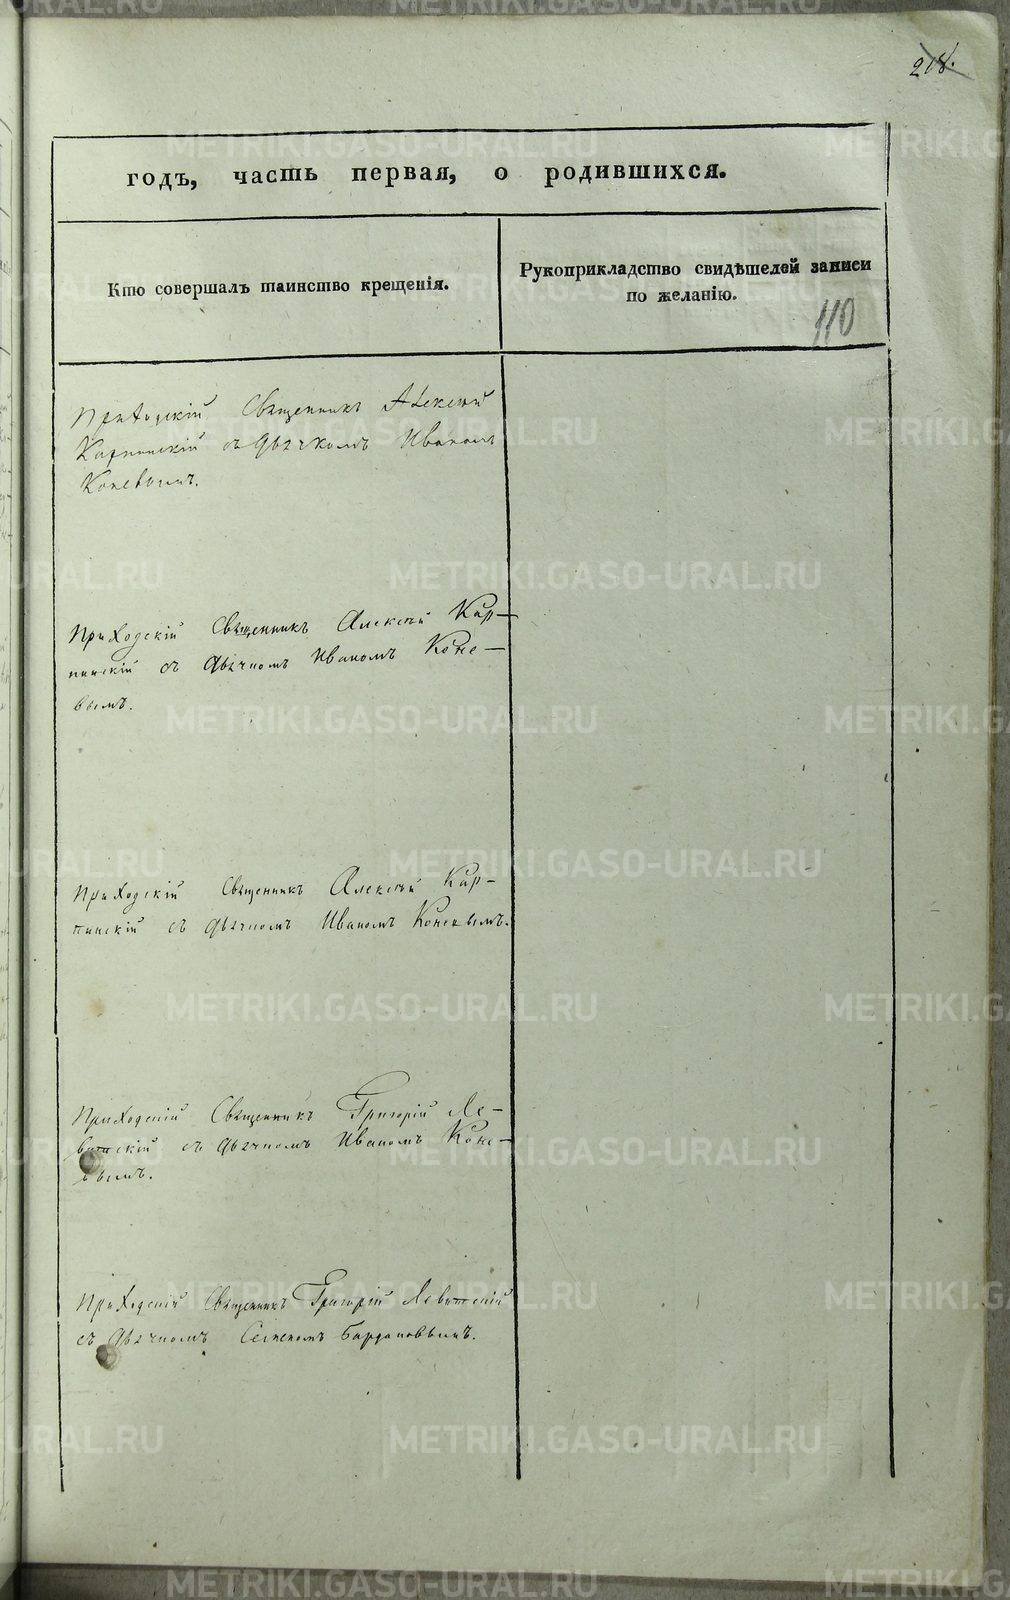 218.
годъ, часть первая, о родившихся.
Кто совершалъ таинство крещенія.
Рукоприкладство свидѣтелей записи
по желанію.
110
Приходскій Священникъ Алексѣй
Карпинскій съ дьячкомъ Иваномъ
Коневымъ.
Приходскій Священникъ Алексѣй Кар-
пинскій съ дьячкомъ Иваномъ Коне-
вымъ.
Приходскій Священникъ Алексѣй Кар-
пинскій съ дьячкомъ Иваномъ Коневымъ.
Приходскій Священникъ Григорій Ле-
витскій съ дьячкомъ Иваномъ Коне-
вымъ.
Приходскій Священникъ Григорій Левитскій
съ дьячкомъ Семеномъ
METRIKI.GASO-URAL.RU